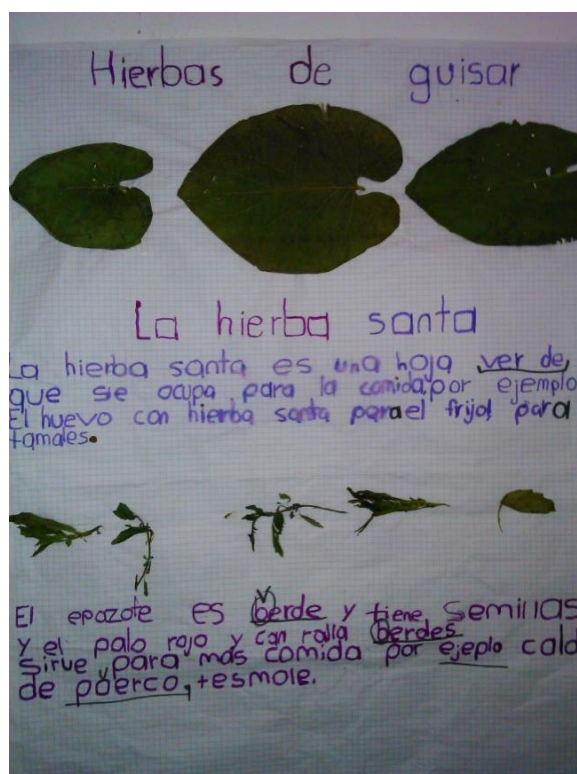 Hierbas de guisar
La hierba santa
La hierba santa es una hoja ver de,
que se ocupa para la comida,por ejemplo
El huevo con hierba santa para el frijol para
tamales.
El epazote es berde y tiene semillas
y el palo rojo y con ralla berdes
sirve para más comida por ejeplo cald
de poerco, tesmole.